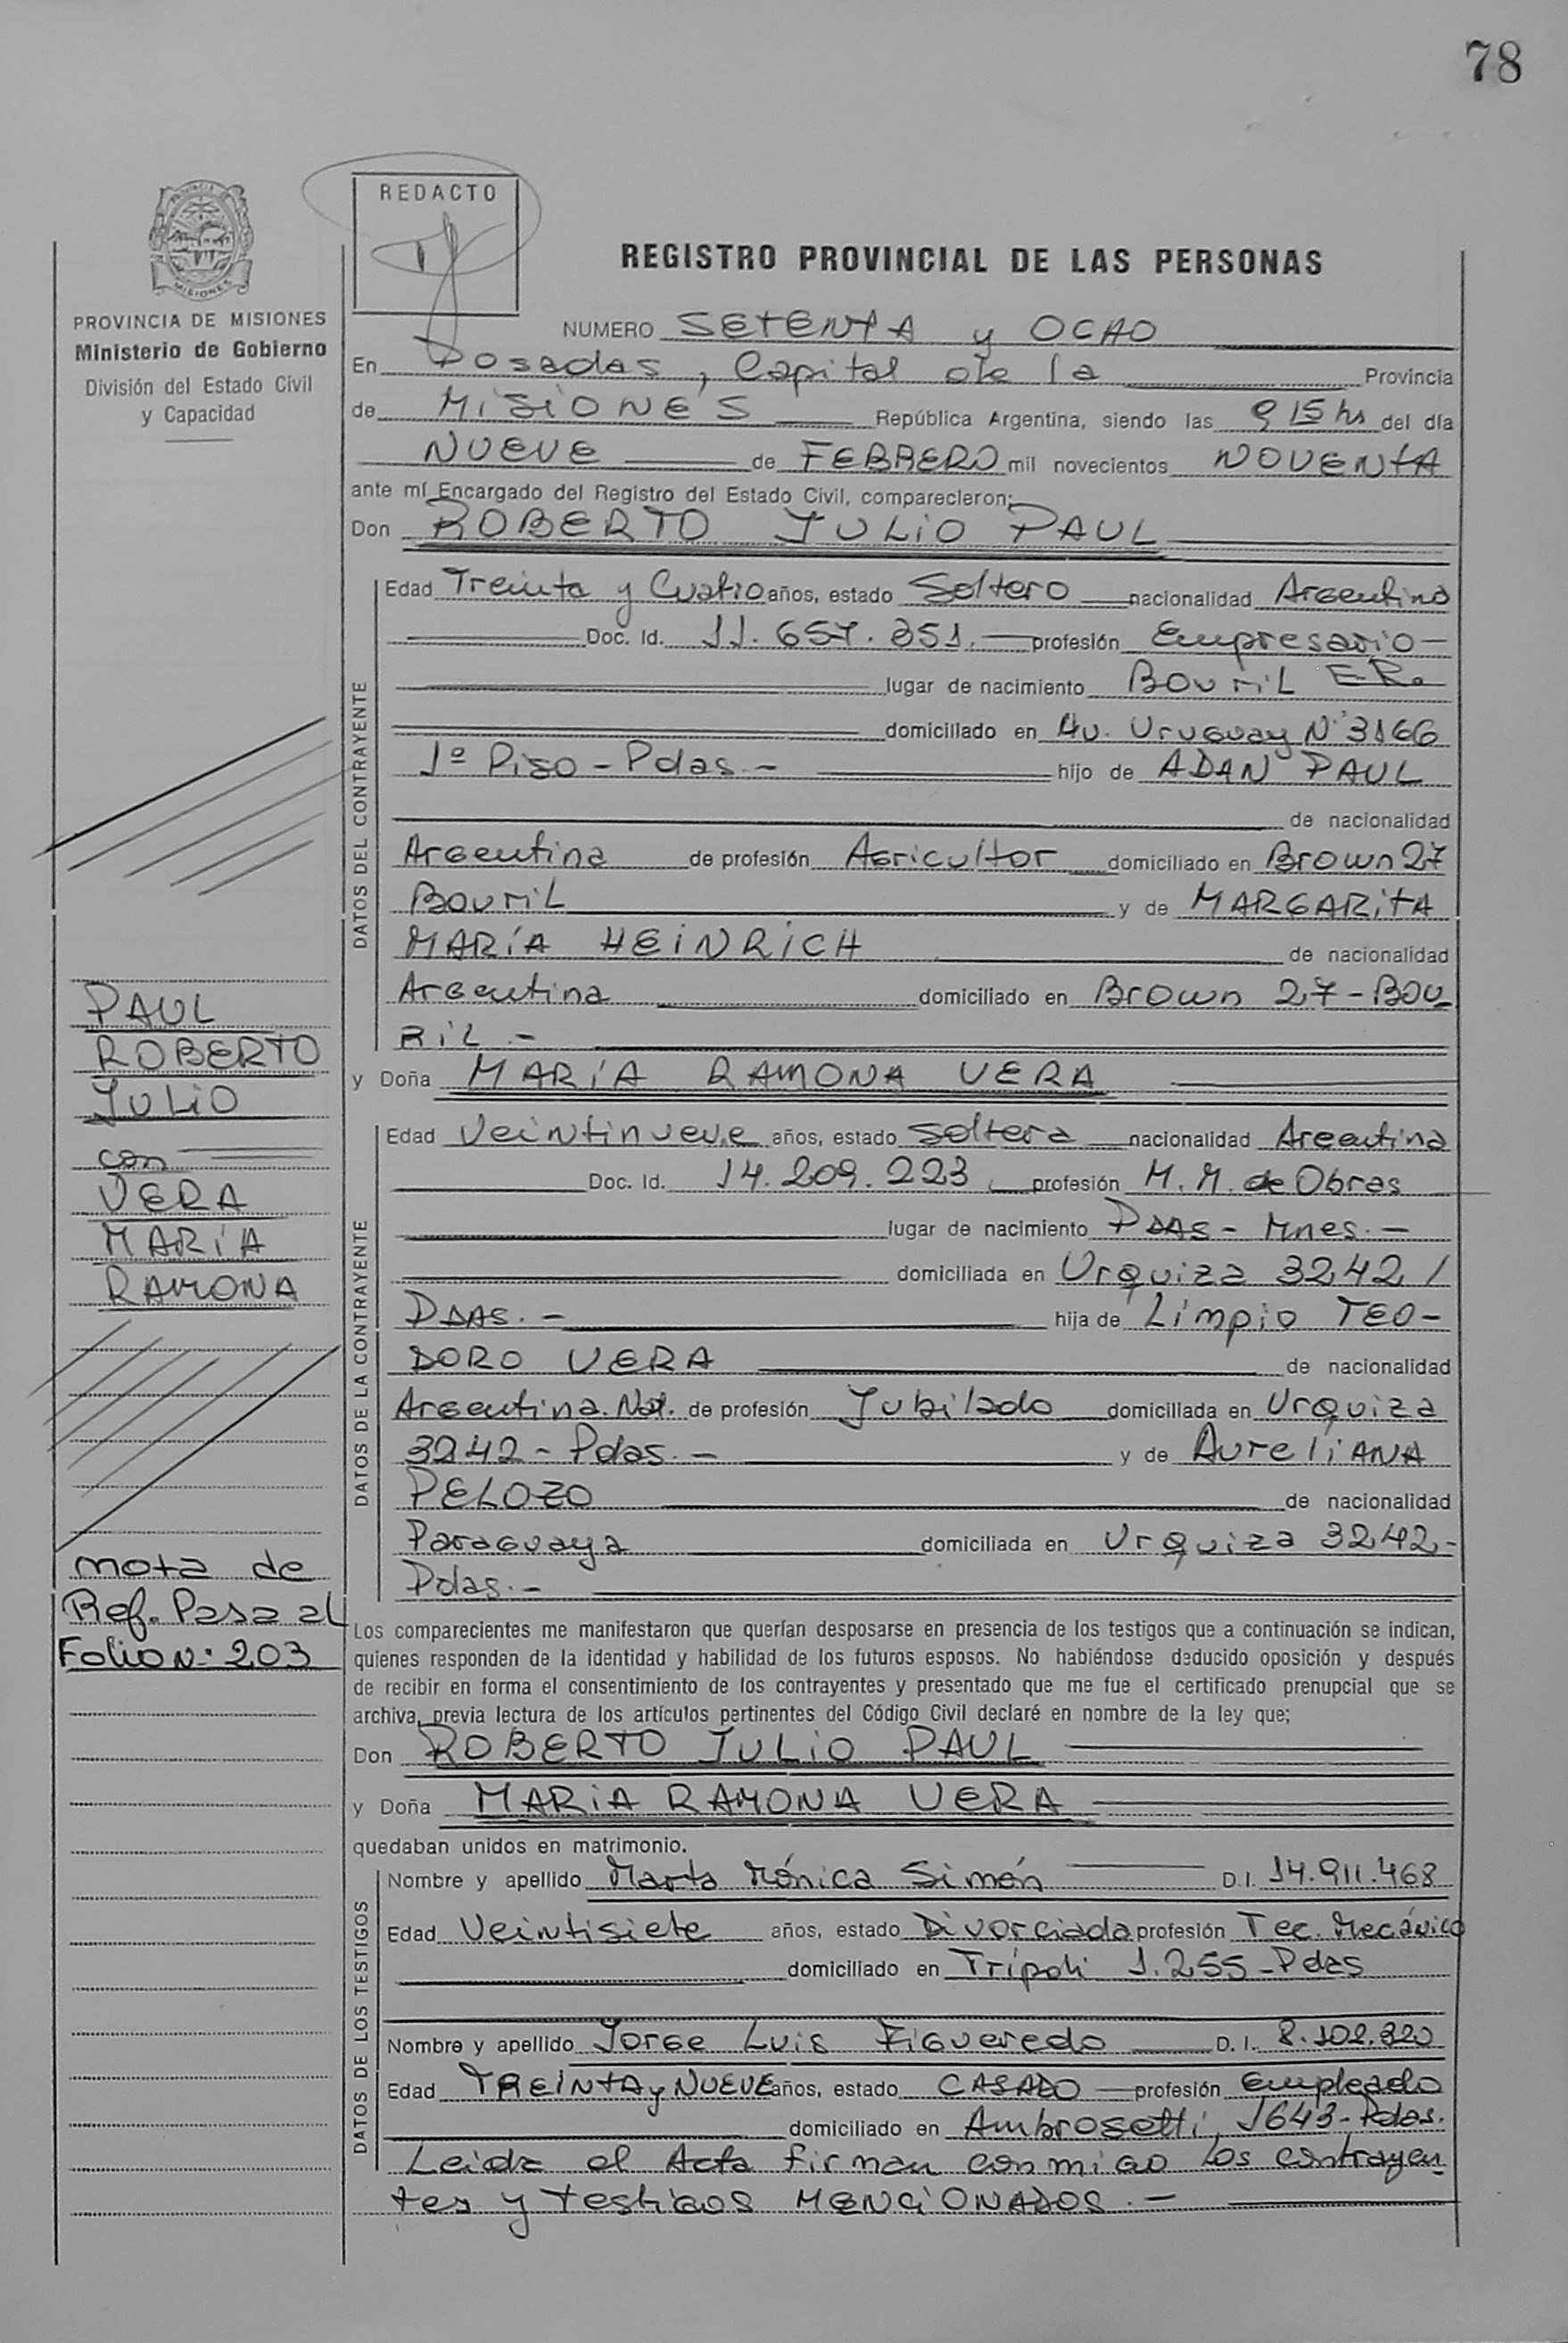 78
PROVINCIA
MISIONES
PROVINCIA DE MISIONES
Ministerio de Gobierno
División del Estado Civil
y Capacidad
REDACTO
REGISTRO PROVINCIAL DE LAS PERSONAS
NUMERO SETENTA y OCHO
En Posadas, Capital de la Provincia
de MISIONES República Argentina, siendo las 9 15 hs del día
NUEVE de FEBRERO mil novecientos NOVENTA
ante mí Encargado del Registro del Estado Civil, comparecieron:
Don ROBERTO JULIO PAUL
DATOS DEL CONTRAYENTE
Edad Treinta y Cuatro años, estado Soltero nacionalidad Argentino
Doc. Id. 11.657.351.- profesión Empresario-
lugar de nacimiento BOVRIL E.R.
domiciliado en Av. Uruguay N° 3166
1º Piso - Pdas.- hijo de ADAN PAUL
de nacionalidad
Argentina de profesión Agricultor domiciliado en Brown 27
Bovril y de MARGARITA
MARÍA HEINRICH de nacionalidad
Argentina domiciliado en Brown 27-BOV
RIL.-
y Doña MARÍA RAMONA VERA
DATOS DE LA CONTRAYENTE
Edad Veintinueve años, estado Soltera nacionalidad Argentina
Doc. Id. 14.209.223 profesión M.M. de Obras
lugar de nacimiento PDAS - Mnes.-
domiciliada en Urquiza 3242/
PDAS.- hija de Limpio TEO-
DORO VERA de nacionalidad
Argentina.Nat. de profesión Jubilado domiciliada en Urquiza
3242 - Pdas.- y de AureliANA
PELOZO de nacionalidad
Paraguaya domiciliada en Urquiza 3242-
Pdas.-
Los comparecientes me manifestaron que querían desposarse en presencia de los testigos que a continuación se indican,
quienes responden de la identidad y habilidad de los futuros esposos. No habiéndose deducido oposición y después
de recibir en forma el consentimiento de los contrayentes y presentado que me fue el certificado prenupcial que se
archiva, previa lectura de los artículos pertinentes del Código Civil declaré en nombre de la ley que;
Don ROBERTO JULIO PAUL
y Doña MARIA RAMONA VERA
quedaban unidos en matrimonio.
DATOS DE LOS TESTIGOS
Nombre y apellido Marta Mónica Simón D.I. 14.911.468
Edad Veintisiete años, estado Divorciada profesión Tec. Mecánico
domiciliado en Trípoli 1.255-Pdas
Nombre y apellido Jorge Luis Figueredo D.I. 8.102.320
Edad TREINTA y NUEVE años, estado CASADO profesión Empleado
domiciliado en Ambrosetti 1643-Pdas.
Leida el Acta firman conmigo los contrayen
tes y testigos MENCIONADOS.-
PAUL
ROBERTO
JULIO
con
VERA
MARÍA
RAMONA
nota de
Ref. Pasa al
Folio N: 203